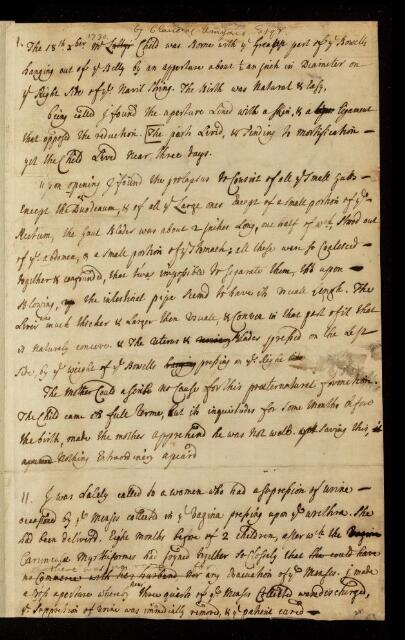 by Claudius Amyand Esqr.
1. The 18th xber 1730. Mr Child was Borne with ye Greatest part of ye Bowells
hanging out of ye Belly by an apperture about ½ an Inch in Diameter on
ye Right Side of ye Navil String. The Birth was Natural & Easy,
being called I found the aperture Lined with a Skin, & a Ligament
that opposed the reduction. The parts Livid, & Tending to Mortification —
yet the Child Lived Near three days.
Upon opening I found the prolapsus to Consist of all ye Small Guts —
Except the Duodenum, & of all ye Large ones Except of a small portion of ye
Rectum, the Gaul Blader was about 2 Inches Long, one half of wch Stood out
of ye abdomen, & a small portion of ye Stomach; all these were so
together & confounded, that twas impossible to Separate them, tho upon —
Blowing, the intestinal pipe Seemd to have its Usuale Length. The
Liver was much thicker & Larger then Usuale, & Convex in that part of it that
is Naturaly concave. & The Uterus & Blader pressed on the Left
Side, by ye weight of ye Bowells pressing on ye Right
The Mother Could ascribe no Cause for this preternatural formation.
The Child came at full Terme, but its inquietudes for some Months before
the birth, made the mother apprehend he was Not well. saving this,
Nothing Extraordinary apeard
11. I was Lately called to a women who had a Supression of urine —
occasiond by ye Menses collected in ye Vagina pressing upon ye urethra. She
had been deliverd, Eight Months before of 2 Children, after wch the
Carunculæ Myrthiformes had joyned together so Closely that
there could have
no Commerce with her husband Nor any Evacuation of ye Menses. I made
a aperture whereby Three quarts of ye Menses were discharged,
ye Suppression of Urine was immediatly removd, & ye patient cured —